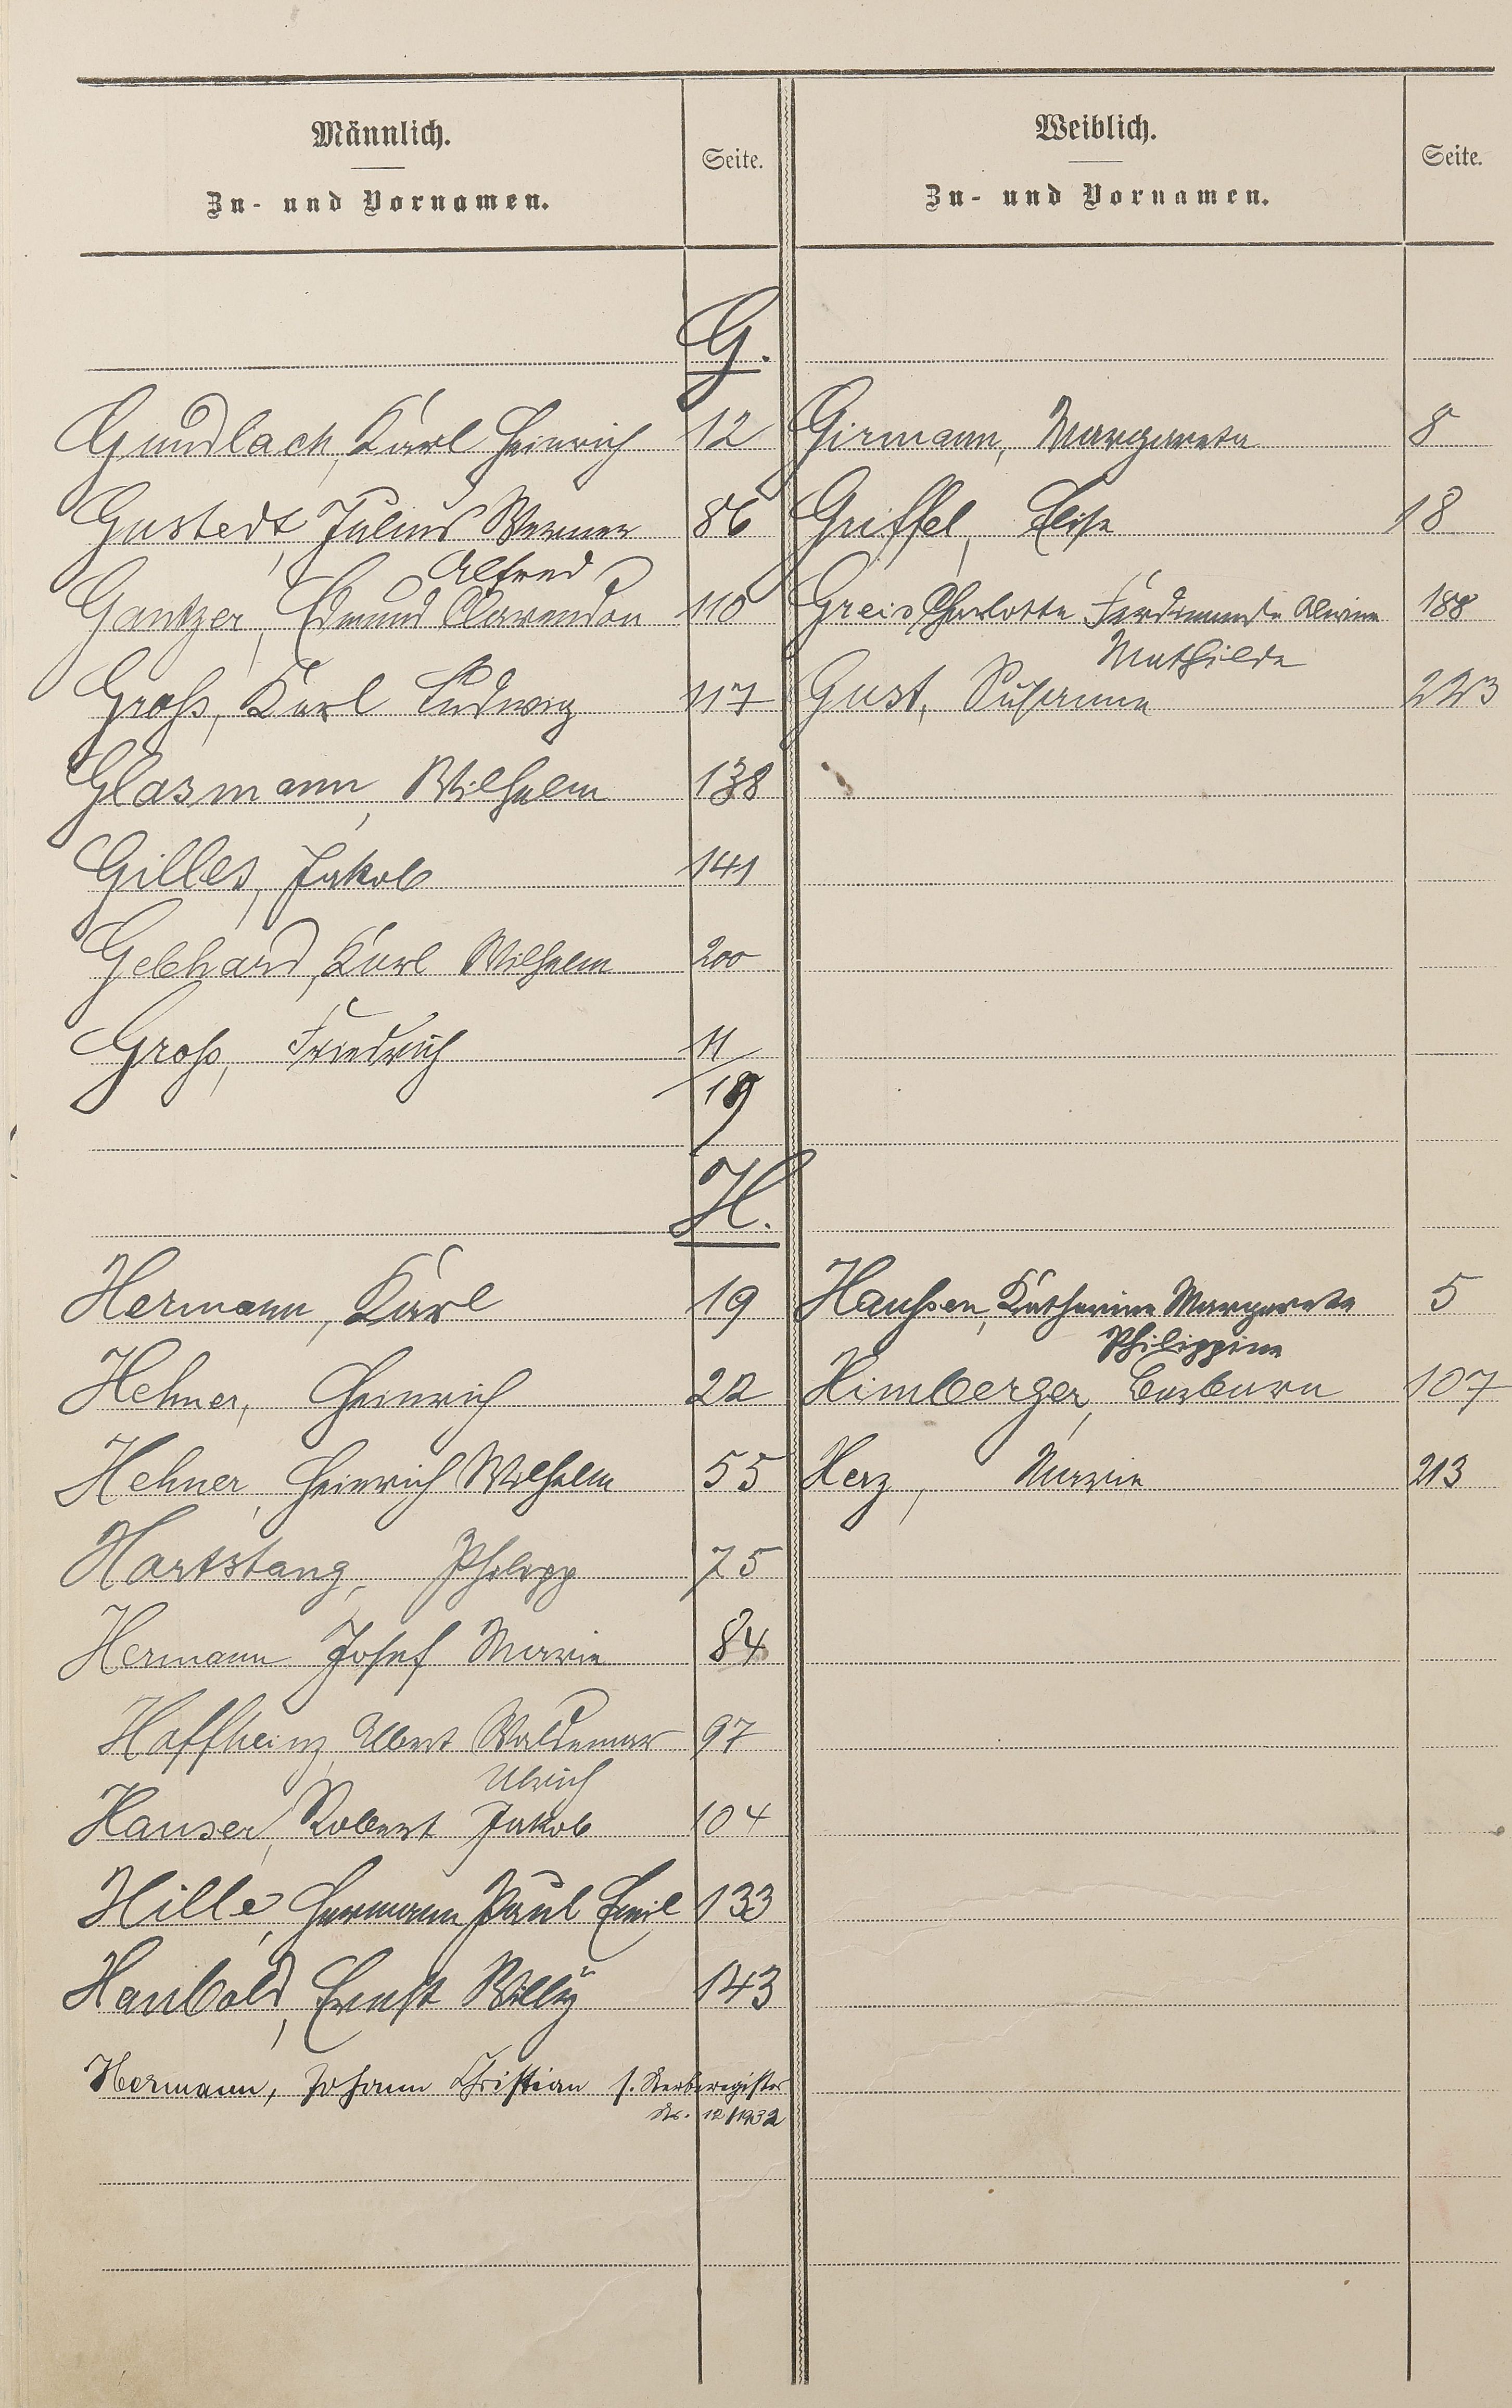 Männlich.
Zu- und Vornamen.
Seite.
Weiblich.
Zu- und Vornamen.
Seite.
G.
Gundlach, Karl Heinrich 12 Girmann, Margareta 8
Gustedt, Julius Werner 86 Griffel, Elise 18
Alfred
Gantzer, Edmund Clarendon 110 Greis, Charlotte Ferdinande Alwine 188
Mathilde
Groß, Karl Ludwig 117 Gust, Susanna 223
Glasmann, Wilhelm 138
Gilles, Jakob 141
Gebhard, Karl Wilhelm 200
Groß, Friedrich 11/
19
H.
Hermann, Karl 19 Haußen, Katharine Margareta 5
Philippine
Hehner, Heinrich 22 Himberger, Barbara 107
Hehner, Heinrich Wilhelm 55 Herz, Marie 213
Hartstang, Philipp 75
Hermann Josef Marie 84
Hoffheinz, Albert Waldemar 97
Ulrich
Hauser, Robert Jakob 104
Hille, Hermann Paul Emil 133
Haubold, Ernst Willy 143
Hermann, Johann Christian s. Sterberegister
Nr. 12/1932